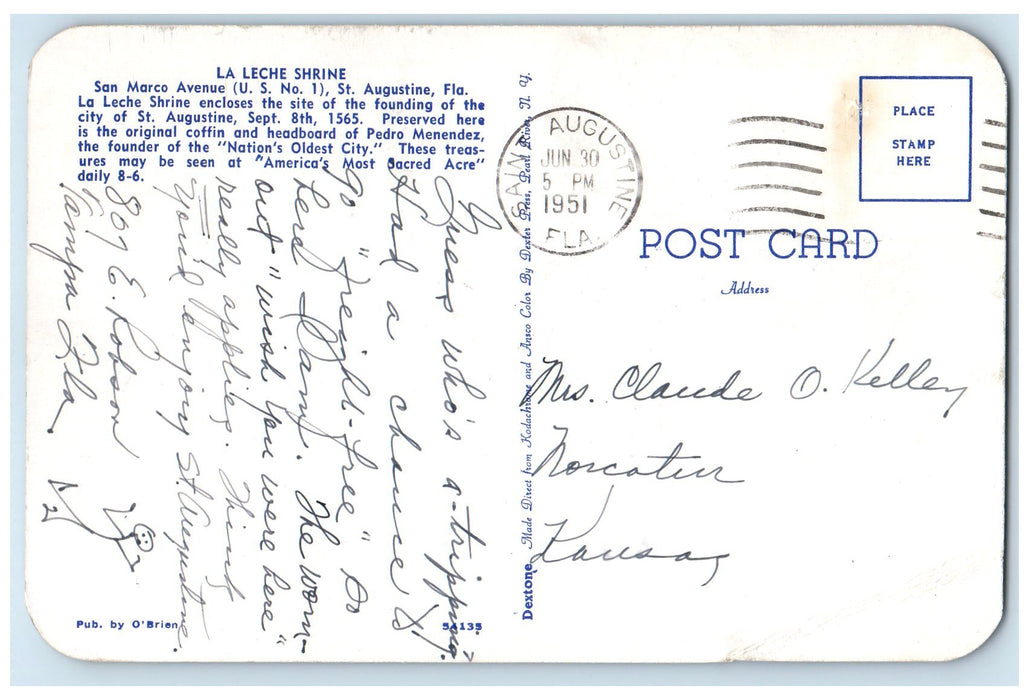 LA LECHE SHRINE
San Marco Avenue (U. S. No. 1), St. Augustine, Fla.
La Leche Shrine encloses the site of the founding of the
city of St. Augustine, Sept. 8th, 1565. Preserved here
is the original coffin and headboard of Pedro Menendez,
the founder of the "Nation's Oldest City." These treas-
ures may be seen at "America's Most Sacred Acre"
daily 8-6.
Guess who's a-tripping?
Had a chance to
go "freight-free" so
here I am. The worn-
out "wish you were here"
really applies. Think
you'd enjoy St. Augustine.
807 E. Robson
Tampa Fla.
Pub. by O'Brien
54135
Dextone Made Direct from Kodachrome and Ansco Color By Dexter Press, Pearl River, N. Y.
SAINT AUGUSTINE
JUN 30
5 PM
1951
FLA.
PLACE
STAMP
HERE
POST CARD
Address
Mrs. Claude O. Kelley
Norcatur
Kansas